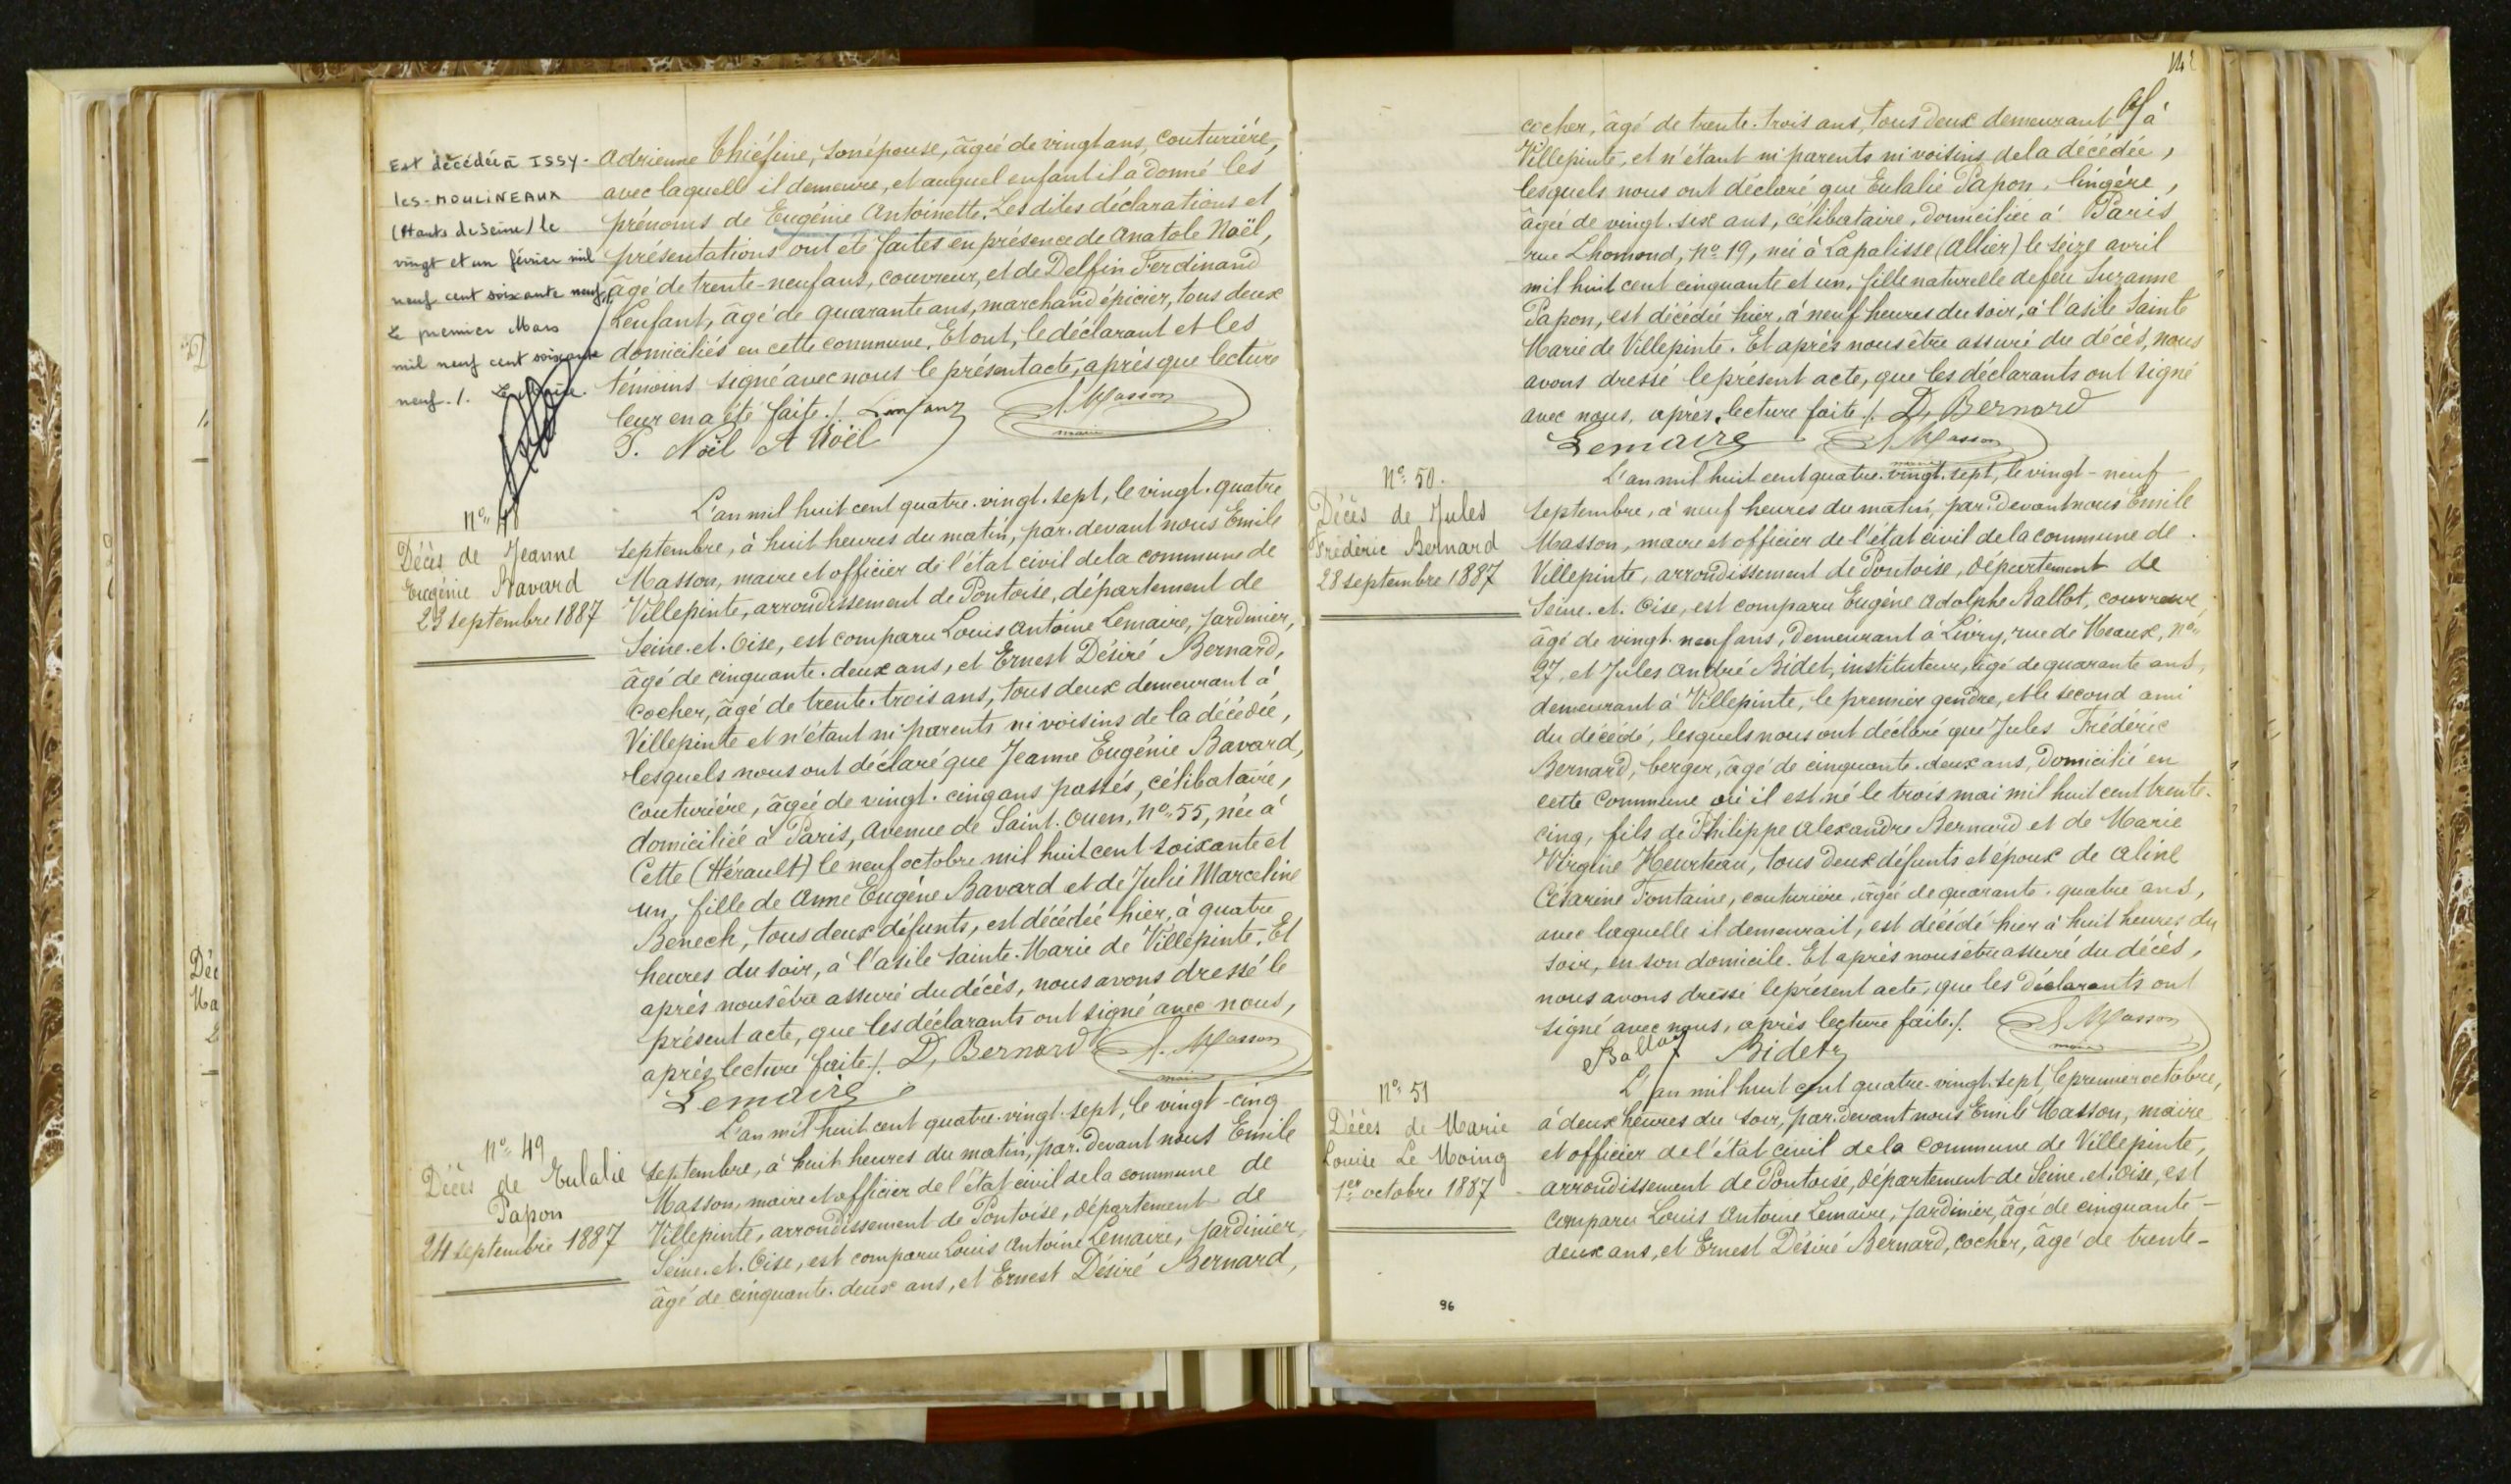 Est décédée à ISSY-
les-MOULINEAUX
(Hauts de Seine) le
vingt et un février mil
neuf cent soixante neuf,
Le premier Mars
mil neuf cent soixante
neuf./.
Adrienne Thiéfine, son épouse, âgée de vingt ans, couturière,
avec laquelle il demeure, et auquel enfant il a donné les
prénoms de Eugénie Antoinette. Les dites déclarations et
présentations ont été faites en présence de Anatole Noël,
âgé de trente-neuf ans, couvreur, et de Delfin Ferdinand
Lenfant, âgé de quarante ans, marchand épicier, tous deux
domiciliés en cette commune. Et ont, le déclarant et les
témoins signé avec nous le présent acte, après que lecture
leur en a été faite./. Lenfant E. Masson
maire
P. Noël A Noël
No 48
Décès de Jeanne
Eugénie Bavard
23 septembre 1887
L'an mil huit cent quatre-vingt-sept, le vingt-quatre
septembre, à huit heures du matin, par-devant nous Emile
Masson, maire et officier de l'état civil de la commune de
Villepinte, arrondissement de Pontoise, département de
Seine-et-Oise, est comparu Louis Antoine Lemaire, jardinier,
âgé de cinquante-deux ans, et Ernest Désiré Bernard,
cocher, âgé de trente-trois ans, tous deux demeurant à
Villepinte et n'étant ni parents ni voisins de la décédée,
lesquels nous ont déclaré que Jeanne Eugénie Bavard,
couturière, âgée de vingt-cinq ans passés, célibataire,
domiciliée à Paris, avenue de Saint-Ouen, No 55, née à
Cette (Hérault) le neuf octobre mil huit cent soixante et
un, fille de Anne Eugène Bavard et de Julie Marceline
Benech, tous deux défunts, est décédée hier, à quatre
heures du soir, à l'asile Sainte-Marie de Villepinte. Et
après nous être assuré du décès, nous avons dressé le
présent acte, que les déclarants ont signé avec nous,
après lecture faite./. D, Bernard E. Masson
maire
Lemaire
No 49
Décès de Eulalie
Papon
24 septembre 1887
L'an mil huit cent quatre-vingt-sept, le vingt-cinq
septembre, à huit heures du matin, par-devant nous Emile
Masson, maire et officier de l'état civil de la commune de
Villepinte, arrondissement de Pontoise, département de
Seine-et-Oise, est comparu Louis Antoine Lemaire, jardinier,
âgé de cinquante-deux ans, et Ernest Désiré Bernard,
cocher, âgé de trente-trois ans, tous deux demeurant à
Villepinte, et n'étant ni parents ni voisins de la décédée,
lesquels nous ont déclaré que Eulalie Papon, lingère,
âgée de vingt-six ans, célibataire, domiciliée à Paris
rue Lhomond, No 19, née à Lapalisse (Allier) le seize avril
mil huit cent cinquante et un, fille naturelle de feu Suzanne
Papon, est décédée hier, à neuf heures du soir, à l'asile Sainte
Marie de Villepinte. Et après nous être assuré du décès, nous
avons dressé le présent acte, que les déclarants ont signé
avec nous, après lecture faite./. D, Bernard
Lemaire E. Masson
maire
No 50.
Décès de Jules
Frédéric Bernard
28 septembre 1887
L'an mil huit cent quatre-vingt-sept, le vingt-neuf
septembre, à neuf heures du matin, par-devant nous Emile
Masson, maire et officier de l'état civil de la commune de
Villepinte, arrondissement de Pontoise, département de
Seine-et-Oise, est comparu Eugène Adolphe Ballot, couvreur,
âgé de vingt-neuf ans, demeurant à Livry, rue de Meaux, No
27, et Jules André Bidet, instituteur, âgé de quarante ans,
demeurant à Villepinte, le premier gendre, et le second ami
du décédé, lesquels nous ont déclaré que Jules Frédéric
Bernard, berger, âgé de cinquante-deux ans, domicilié en
cette commune où il est né le trois mai mil huit cent trente-
cinq, fils de Philippe Alexandre Bernard et de Marie
Virginie Heurteau, tous deux défunts et époux de Aline
Césarine Fontaine, couturière, âgée de quarante-quatre ans,
avec laquelle il demeurait, est décédé hier à huit heures du
soir, en son domicile. Et après nous être assuré du décès,
nous avons dressé le présent acte, que les déclarants ont
signé avec nous, après lecture faite./. E. Masson
maire
Ballot Bidet
No 51
Décès de Marie
Louise Le Moing
1er octobre 1887
L'an mil huit cent quatre-vingt-sept, le premier octobre,
à deux heures du soir, par-devant nous Emile Masson, maire
et officier de l'état civil de la commune de Villepinte,
arrondissement de Pontoise, département de Seine-et-Oise, est
comparu Louis Antoine Lemaire, jardinier, âgé de cinquante-
deux ans, et Ernest Désiré Bernard, cocher, âgé de trente-
96